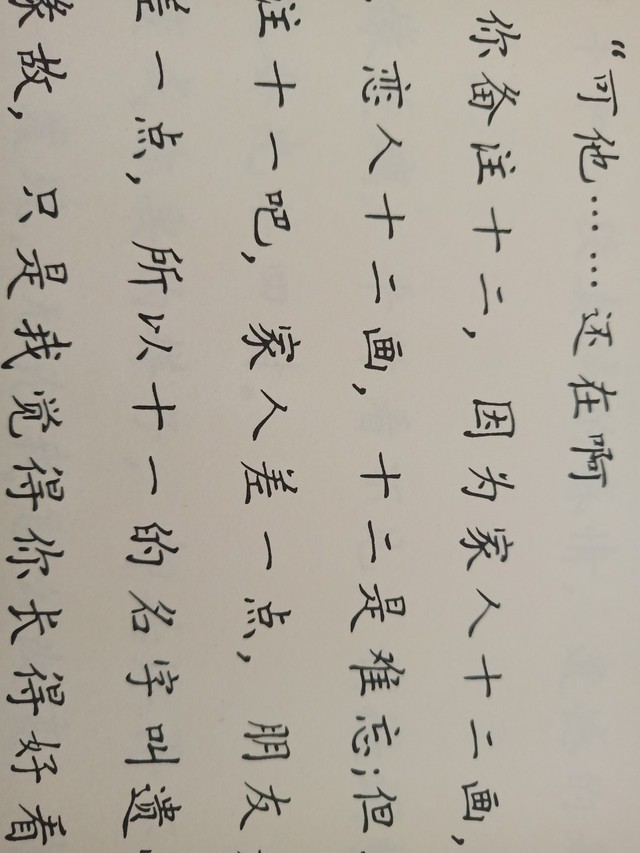 “可他……还在啊
你备注十二，因为家人十二画，
恋人十二画，十二是难忘；但
注十一吧，家人差一点，朋友
差一点，所以十一的名字叫遗
缘故，只是我觉得你长得好看